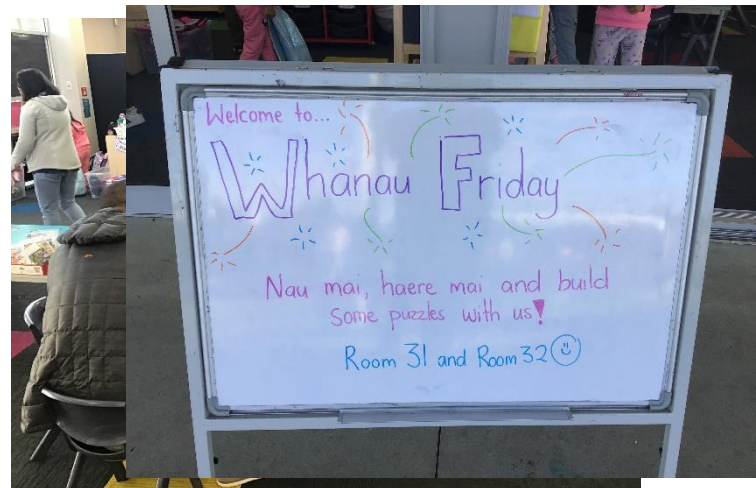 Welcome to...
Whanau Friday
Nau mai, haere mai and build
some puzzles with us!
Room 31 and Room 32